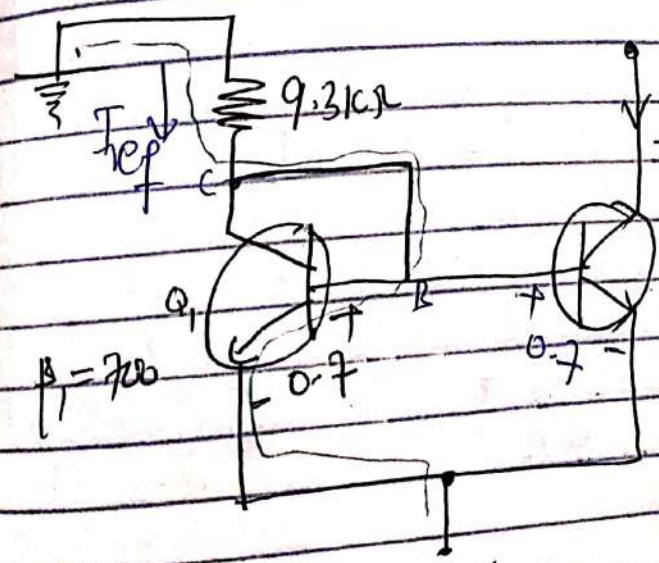 9.3KΩ
Iref
C
Q₁
B
+
+
0.7 -
β₁ = 700
- 0.7